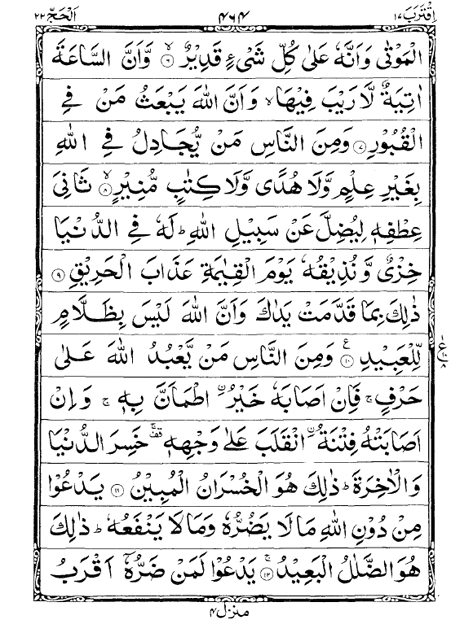 اقترب ١٧ ٤٦٤ الحج ٢٢
الْمَوْتٰى وَاَنَّهٗ عَلٰى كُلِّ شَىْءٍ قَدِيْرٌ ۙ‏﴿۶﴾ وَّاَنَّ السَّاعَةَ
اٰتِيَةٌ لَّا رَيْبَ فِيْهَا ۙ وَاَنَّ اللّٰهَ يَبْعَثُ مَنْ فِى
الْقُبُوْرِ ﴿۷﴾ وَمِنَ النَّاسِ مَنْ يُّجَادِلُ فِى اللّٰهِ
بِغَيْرِ عِلْمٍ وَّلَا هُدًى وَّلَا كِتٰبٍ مُّنِيْرٍ ۙ‏﴿۸﴾ ثَانِىَ
عِطْفِهٖ لِيُضِلَّ عَنْ سَبِيْلِ اللّٰهِ ؕ لَهٗ فِى الدُّنْيَا
خِزْىٌ وَّنُذِيْقُهٗ يَوْمَ الْقِيٰمَةِ عَذَابَ الْحَرِيْقِ ﴿۹﴾
ذٰلِكَ بِمَا قَدَّمَتْ يَدٰكَ وَاَنَّ اللّٰهَ لَيْسَ بِظَلَّامٍ
لِّلْعَبِيْدِ ﴿۱۰﴾ وَمِنَ النَّاسِ مَنْ يَّعْبُدُ اللّٰهَ عَلٰى
حَرْفٍ ۚ فَاِنْ اَصَابَهٗ خَيْرُ اۨطْمَاَنَّ بِهٖ ۚ وَاِنْ
اَصَابَتْهُ فِتْنَةُ اۨنْقَلَبَ عَلٰى وَجْهِهٖ ۚ خَسِرَ الدُّنْيَا
وَالْاٰخِرَةَ ؕ ذٰلِكَ هُوَ الْخُسْرَانُ الْمُبِيْنُ ﴿۱۱﴾ يَدْعُوْا
مِنْ دُوْنِ اللّٰهِ مَا لَا يَضُرُّهٗ وَمَا لَا يَنْفَعُهٗ ؕ ذٰلِكَ
هُوَ الضَّلٰلُ الْبَعِيْدُ ۚ‏﴿۱۲﴾ يَدْعُوْا لَمَنْ ضَرُّهٗۤ اَقْرَبُ
منزل ٤